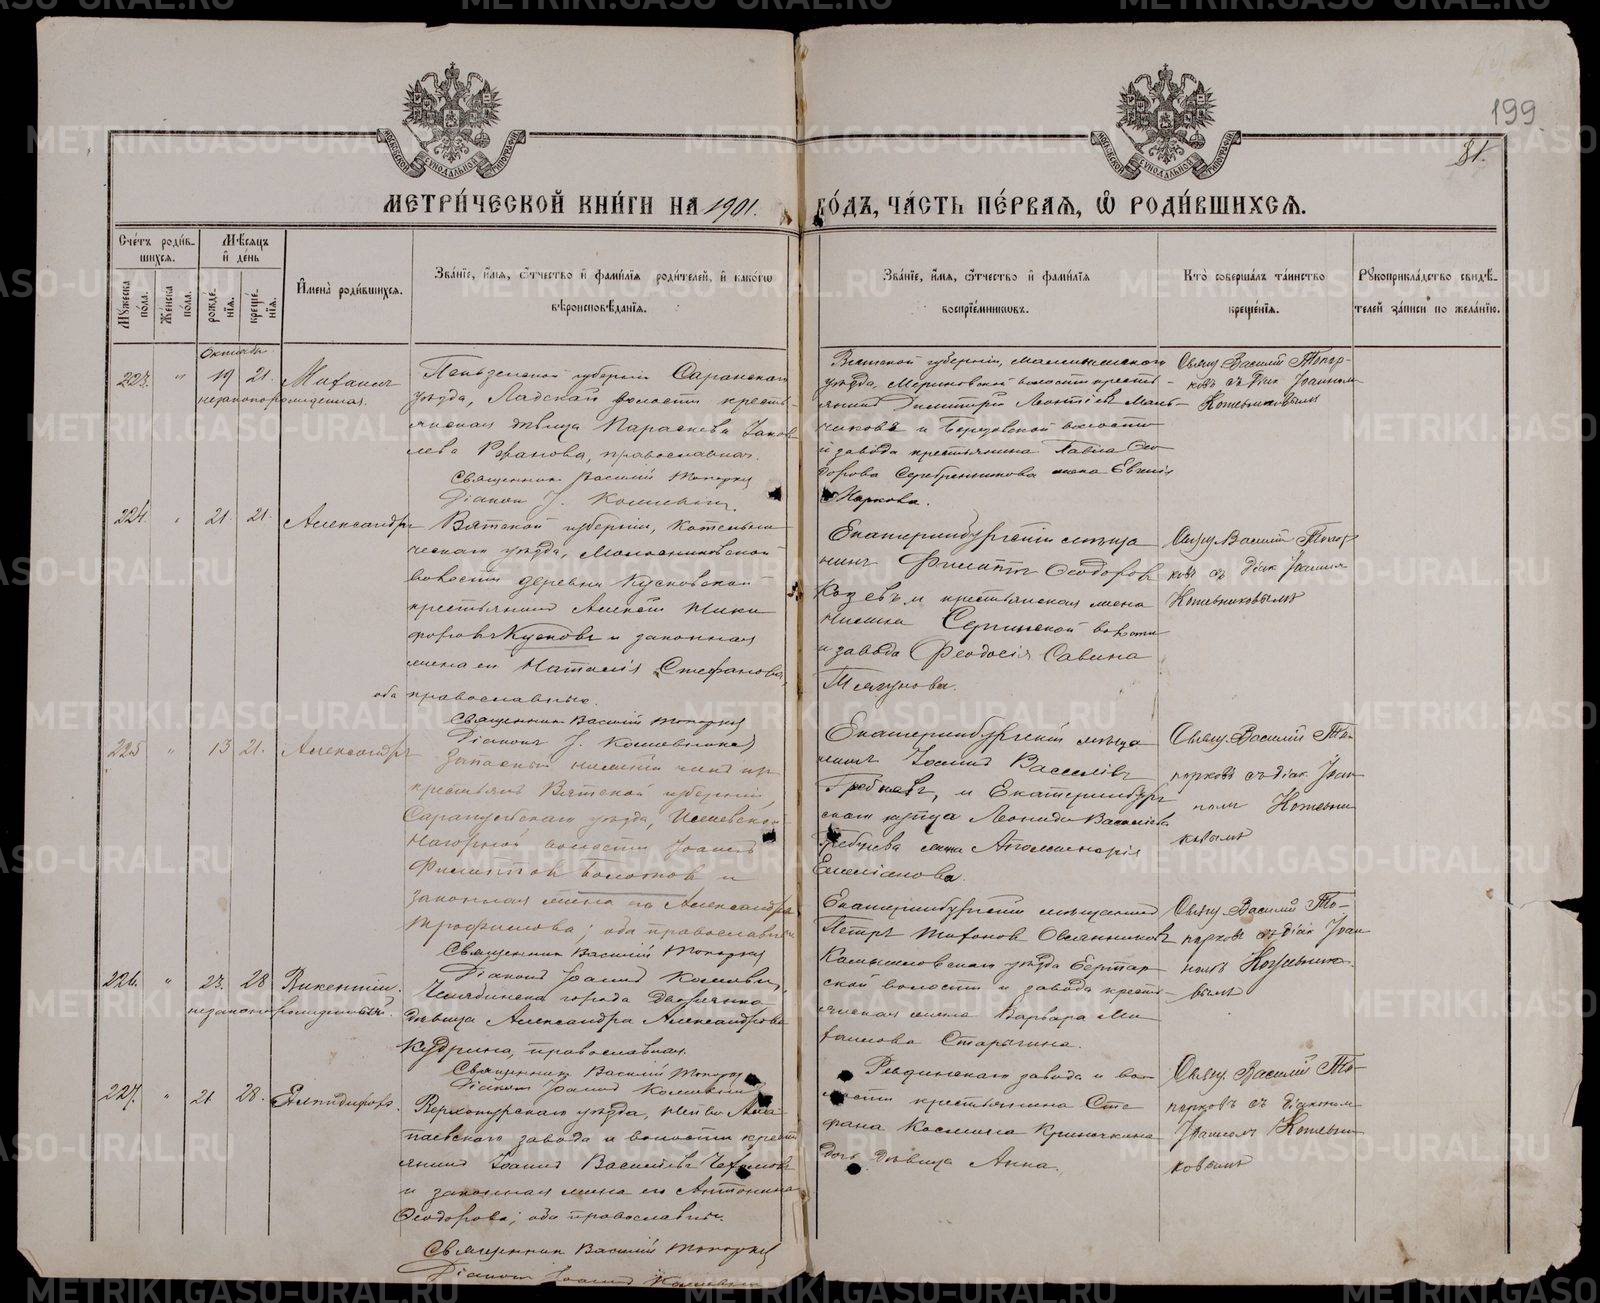 199
81.
МОСКОВСКОЙ СѴНОДАЛЬНОЙ ТИПОГРАФІИ
МОСКОВСКОЙ СѴНОДАЛЬНОЙ ТИПОГРАФІИ
МЕТРИ́ЧЕСКОЙ КНИ́ГИ НА 1901. ГО́ДЪ, ЧА́СТЬ ПЕ́РВАЯ, Ѿ РОДИ́ВШИХСЯ.
Сче́тъ роди́в-
шихся.
Мꙋ́жеска по́ла.
Же́нска по́ла.
Мѣ́сяцъ и де́нь
рожде́нїя.
креще́нїя.
И҆мена̀ роди́вшихся.
Зва́нїе, и҆́мя, ѻ҆́тчество и҆ фами́лїя роди́телей, и҆ како́гѡ
вѣроисповѣ́данїя.
Зва́нїе, и҆́мя, ѻ҆́тчество и҆ фами́лїя
воспрїе́мниковъ.
Кто̀ соверша́лъ та́инство
креще́нїя.
Рꙋкоприкла́дство свидѣ́-
телей за́писи по жела́нїю.
Октябрь
223. " 19 21.
незаконорожденная.
Пензенской губерніи Саранскаго
уѣзда, Ладской волости кресть-
янская дѣвица Параскева Іаков
лева Рзванова, православная.
Священникъ Василій Топорк
Діакон І. Кожевник
Вятской губерніи, Малмыжскаго
уѣзда, волости кресть-
янинъ Димитрій Леонтіев Маль-
чиковъ и Березовской волости
и завода крестьянина Павла Ѳео
дорова Серебренникова жена Евгенія
Маркова.
Свящ. Василій Топор-
ковъ съ діак Іоанном
Кожевниковымъ
224. " 21. 21. Александръ
Вятской губерніи, Котельни
ческаго уѣзда,
волости деревни Кусковской
крестьянинъ Алексѣй Ники
форовъ Кусковъ и законная
жена его Наталія Стефанова,
оба православные.
Священник Василій Топорк
Діаконъ І. Кожевников
Екатеринбургскій мѣща
нинъ Филиппъ Ѳеодоров
и крестьянская жена
Сергинской волости
и завода Ѳеодосія Савина
Свящ. Василій Топор
ковъ съ діак Іоанном
Кожевниковымъ
225 " 13 21. Александръ
Запасный нижній чинъ изъ
крестьянъ Вятской губерніи,
Сарапульскаго уѣзда, Ижевско-
Нагорной волости Іоаннъ
Филиппов Болотов и
законная жена его Александра
Трофимова; оба православные
Священник Василій Топорк
Діаконъ Іоаннъ Кожевн
Екатеринбургскій мѣща
нинъ Іоаннъ Василіевъ
Гребневъ, и Екатеринбург
скаго купца Леонида Василіева
жена Аполлинарія
Емеліанова.
Свящ. Василій То-
порковъ съ діак. Іоан
ном Кожевни
ковымъ
226. " 23. 28 Викентій.
незаконнорожденный.
Челябинска города дворянка
дѣвица Александра Александрова
Кудрина, православная.
Священник Василій Топорк
Діакон Іоаннъ Кожевник
Екатеринбургскій мѣщанинъ
Петръ Тихонов Овсянников
Камышловскаго уѣзда
ской волости и завода кресть-
янская жена Варвара Ми
хаилова Старыгина.
Свящ. Василій То-
порковъ съ діак Іоан
номъ Кожевнико-
вымъ
227. " 21. 28. Елпидифоръ.
Верхотурскаго уѣзда,
паевскаго завода и волости крест
янинъ Іоаннъ Василіевъ
и законная жена его Антонина
Ѳеодорова; оба православные.
Священник Василій Топорк
Діаконъ Іоаннъ Кожевник
Ревдинскаго завода и во-
лости крестьянина Сте
фана Космина
дочь дѣвица Анна.
Свящ. Василій То-
порковъ съ діаконом
Іоанномъ Кожевни
ковымъ
METRIKI.GASO-URAL.RU